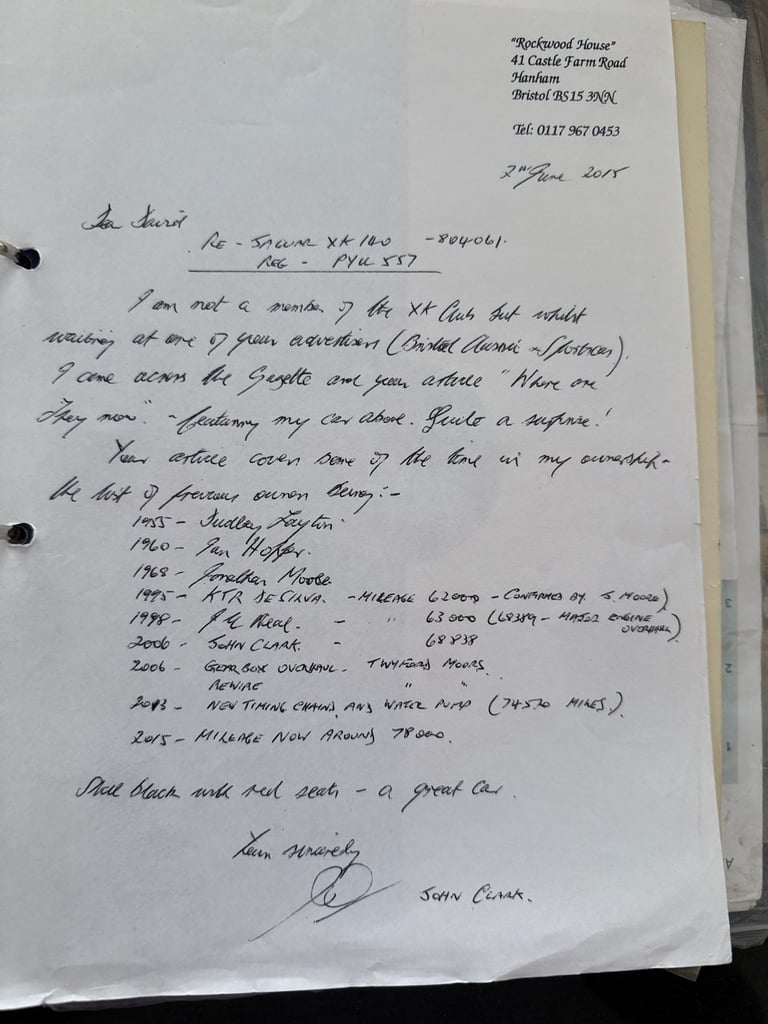 "Rockwood House"
41 Castle Farm Road
Hanham
Bristol BS15 3NN
Tel: 0117 967 0453
2nd June 2015
Dear David
RE - JAGUAR XK 140 - 804061.
REG - PYU 557
I am not a member of the XK Club but whilst
waiting at one of your advertisers (Bristol Classic Sportscars).
I came across the Gazette and your article "Where are
They now". - featuring my car above. Quite a surprise!
Your article covers some of the time in my ownership -
the list of previous owners being:-
1955 - Dudley
1960 - Ian Hopper.
1968 - Jonathan Moore
1995 - KTR DE SILVA. - MILEAGE 62000 - CONFIRMED BY J. MOORE)
1998 - J E Neal. - " 63000 (68389 - MAJOR ENGINE
OVERHAUL)
2006 - JOHN CLARK. - 68838
2006 - GEARBOX OVERHAUL - TWYFORD MOORS.
REWIRE " "
2013 - NEW TIMING CHAINS AND WATER PUMP (74570 MILES).
2015 - MILEAGE NOW AROUND 78000.
Still black with red seats - a great car.
Yours sincerely
JOHN CLARK.
3
2
1
A